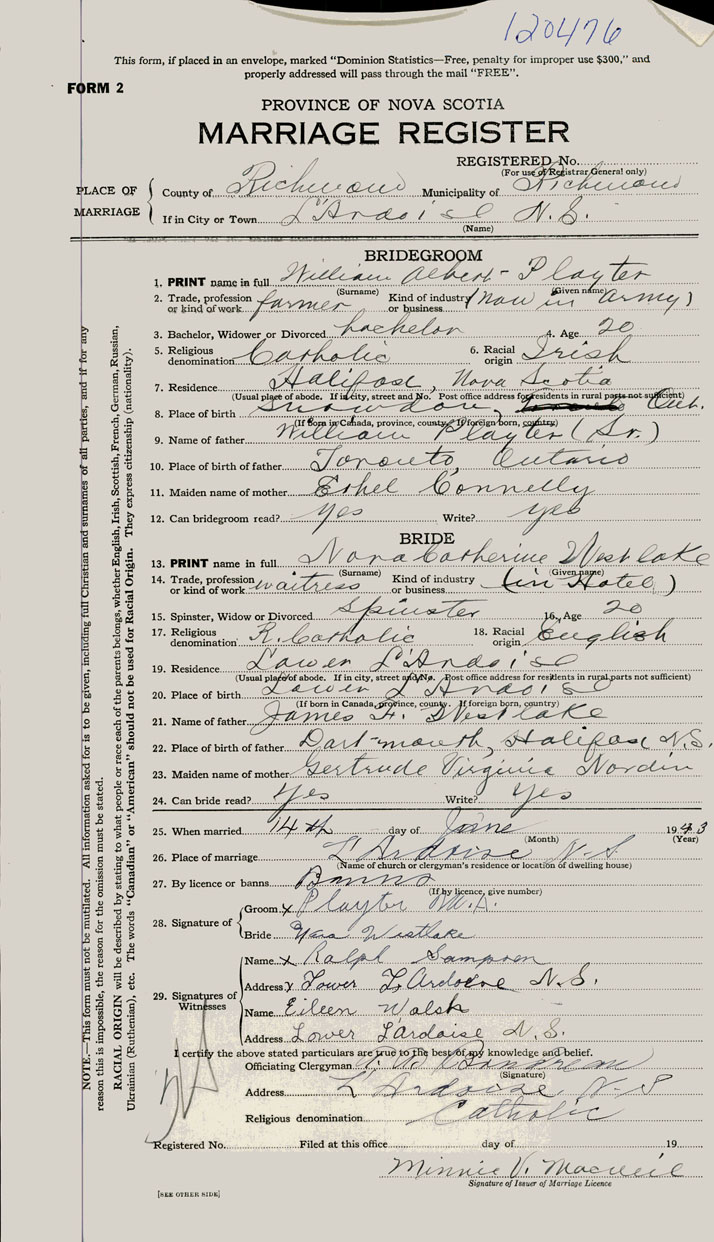 120476
This form, if placed in an envelope, marked "Dominion Statistics—Free, penalty for improper use $300," and
properly addressed will pass through the mail "FREE".
FORM 2
PROVINCE OF NOVA SCOTIA
MARRIAGE REGISTER
REGISTERED No.
(For use of Registrar General only)
PLACE OF MARRIAGE
County of Richmond Municipality of Richmond
If in City or Town L'Ardoise N.S.
(Name)
BRIDEGROOM
1. PRINT name in full William Albert Playter
(Surname) (Given name)
2. Trade, profession or kind of work farmer Kind of industry or business (Now in Army)
3. Bachelor, Widower or Divorced bachelor 4. Age 20
5. Religious denomination Catholic 6. Racial origin Irish
7. Residence Halifax, Nova Scotia
(Usual place of abode. If in city, street and No. Post office address for residents in rural parts not sufficient)
8. Place of birth Snowdon, Ont.
(If born in Canada, province, county. If foreign born, country)
9. Name of father William Playter (Sr.)
10. Place of birth of father Toronto, Ontario
11. Maiden name of mother Ethel Connelly
12. Can bridegroom read? yes Write? yes
BRIDE
13. PRINT name in full Nora Catherine Westlake
(Surname) (Given name)
14. Trade, profession or kind of work waitress Kind of industry or business (in Hotel)
15. Spinster, Widow or Divorced Spinster 16. Age 20
17. Religious denomination R. Catholic 18. Racial origin English
19. Residence Lower L'Ardoise
(Usual place of abode. If in city, street and No. Post office address for residents in rural parts not sufficient)
20. Place of birth Lower L'Ardoise
(If born in Canada, province, county. If foreign born, country)
21. Name of father James H. Westlake
22. Place of birth of father Dartmouth, Halifax N.S.
23. Maiden name of mother Gertrude Virginia Nordin
24. Can bride read? Yes Write? Yes
25. When married 14th day of June 1943
(Month) (Year)
26. Place of marriage L'Ardoise N-S
(Name of church or clergyman's residence or location of dwelling house)
27. By licence or banns Banns
(If by licence, give number)
28. Signature of
Groom x Playter W.A.
Bride Nora Westlake
29. Signatures of Witnesses
Name x Ralph Sampson
Address x Lower L'Ardoise N.S.
Name Eileen Walsh
Address Lower L'ardoise N.S.
I certify the above stated particulars are true to the best of my knowledge and belief.
Officiating Clergyman
(Signature)
Address L'Ardoise N-S
Religious denomination Catholic
Registered No. Filed at this office day of 19
Minnie V. Macneil
Signature of Issuer of Marriage Licence
[SEE OTHER SIDE]
NOTE.—This form must not be mutilated. All information asked for is to be given, including full Christian and surnames of all parties, and if for any
reason this is impossible, the reason for the omission must be stated.
RACIAL ORIGIN will be described by stating to what people or race each of the parents belongs, whether English, Irish, Scottish, French, German, Russian,
Ukrainian (Ruthenian), etc. The words "Canadian" or "American" should not be used for Racial Origin. They express citizenship (nationality).